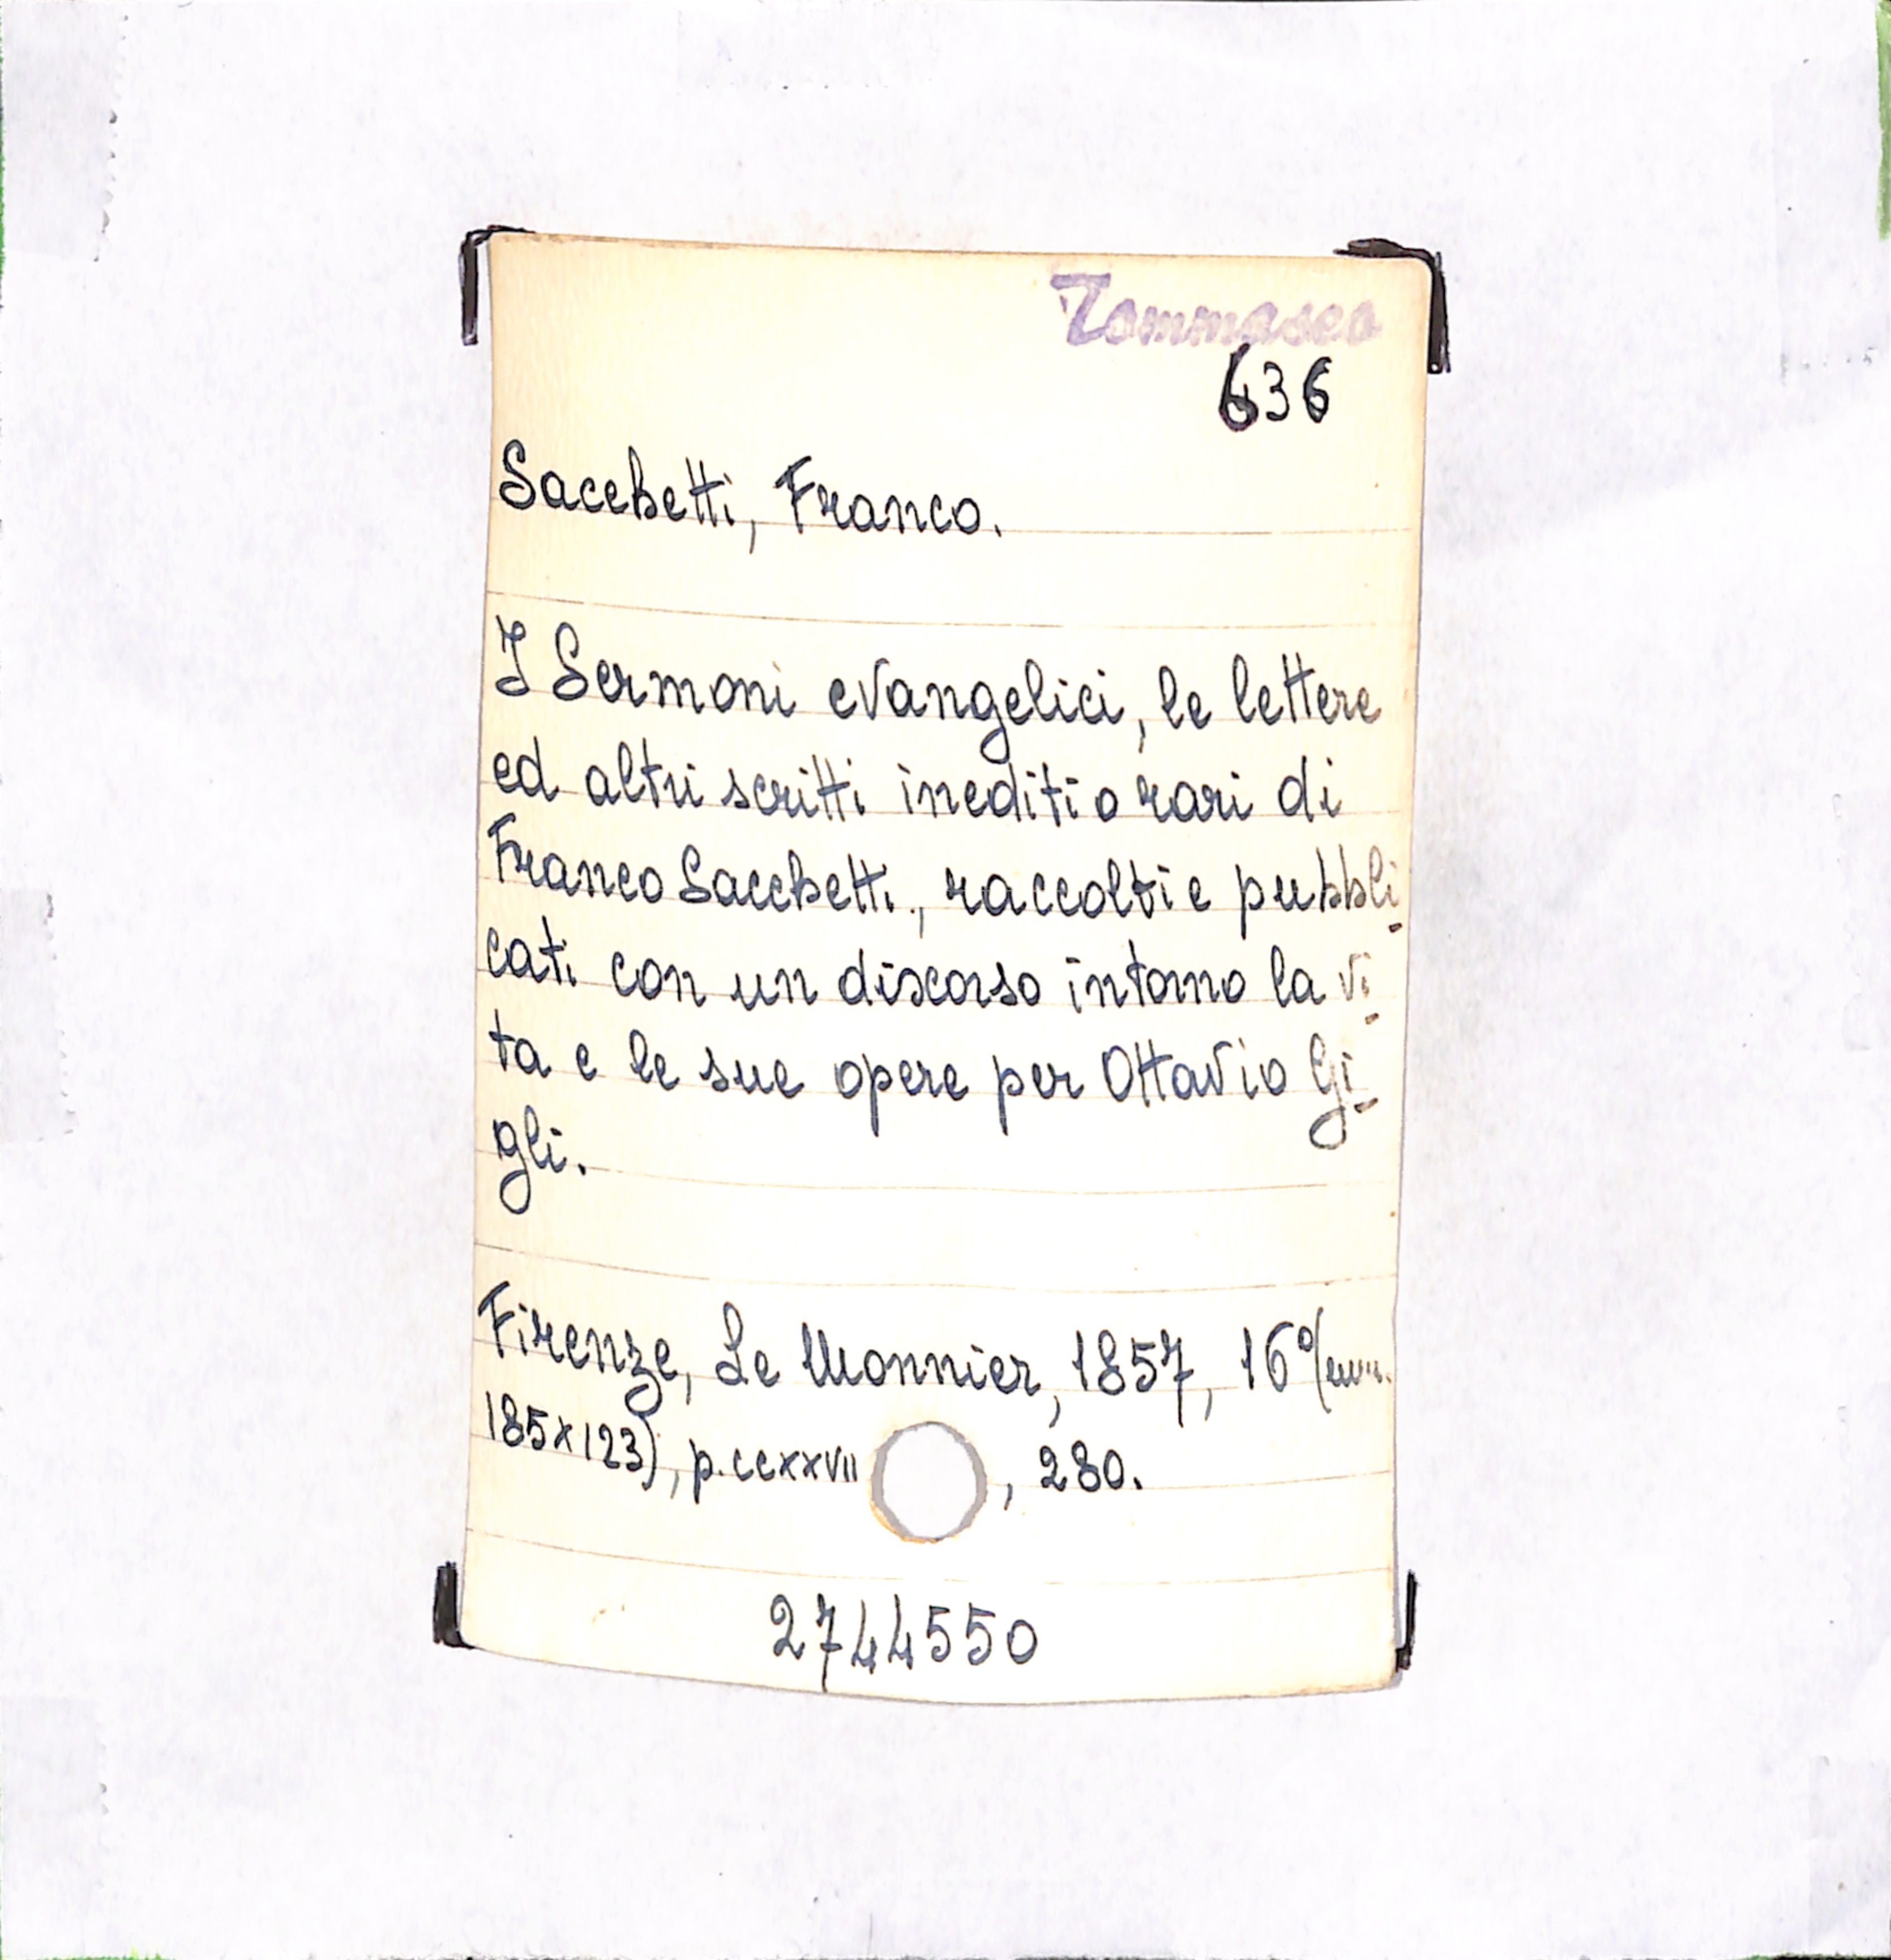 Tommaseo
636
Sacchetti, Franco.
I Sermoni evangelici, le lettere
ed altri scritti inediti o rari di
Franco Sacchetti, raccolti e pubbli-
cati con un discorso intorno la vi-
ta e le sue opere per Ottavio Gi-
gli.
Firenze, Le Monnier, 1857, 16°(mm.
185x123), p. ccxxvii, 280.
2744550